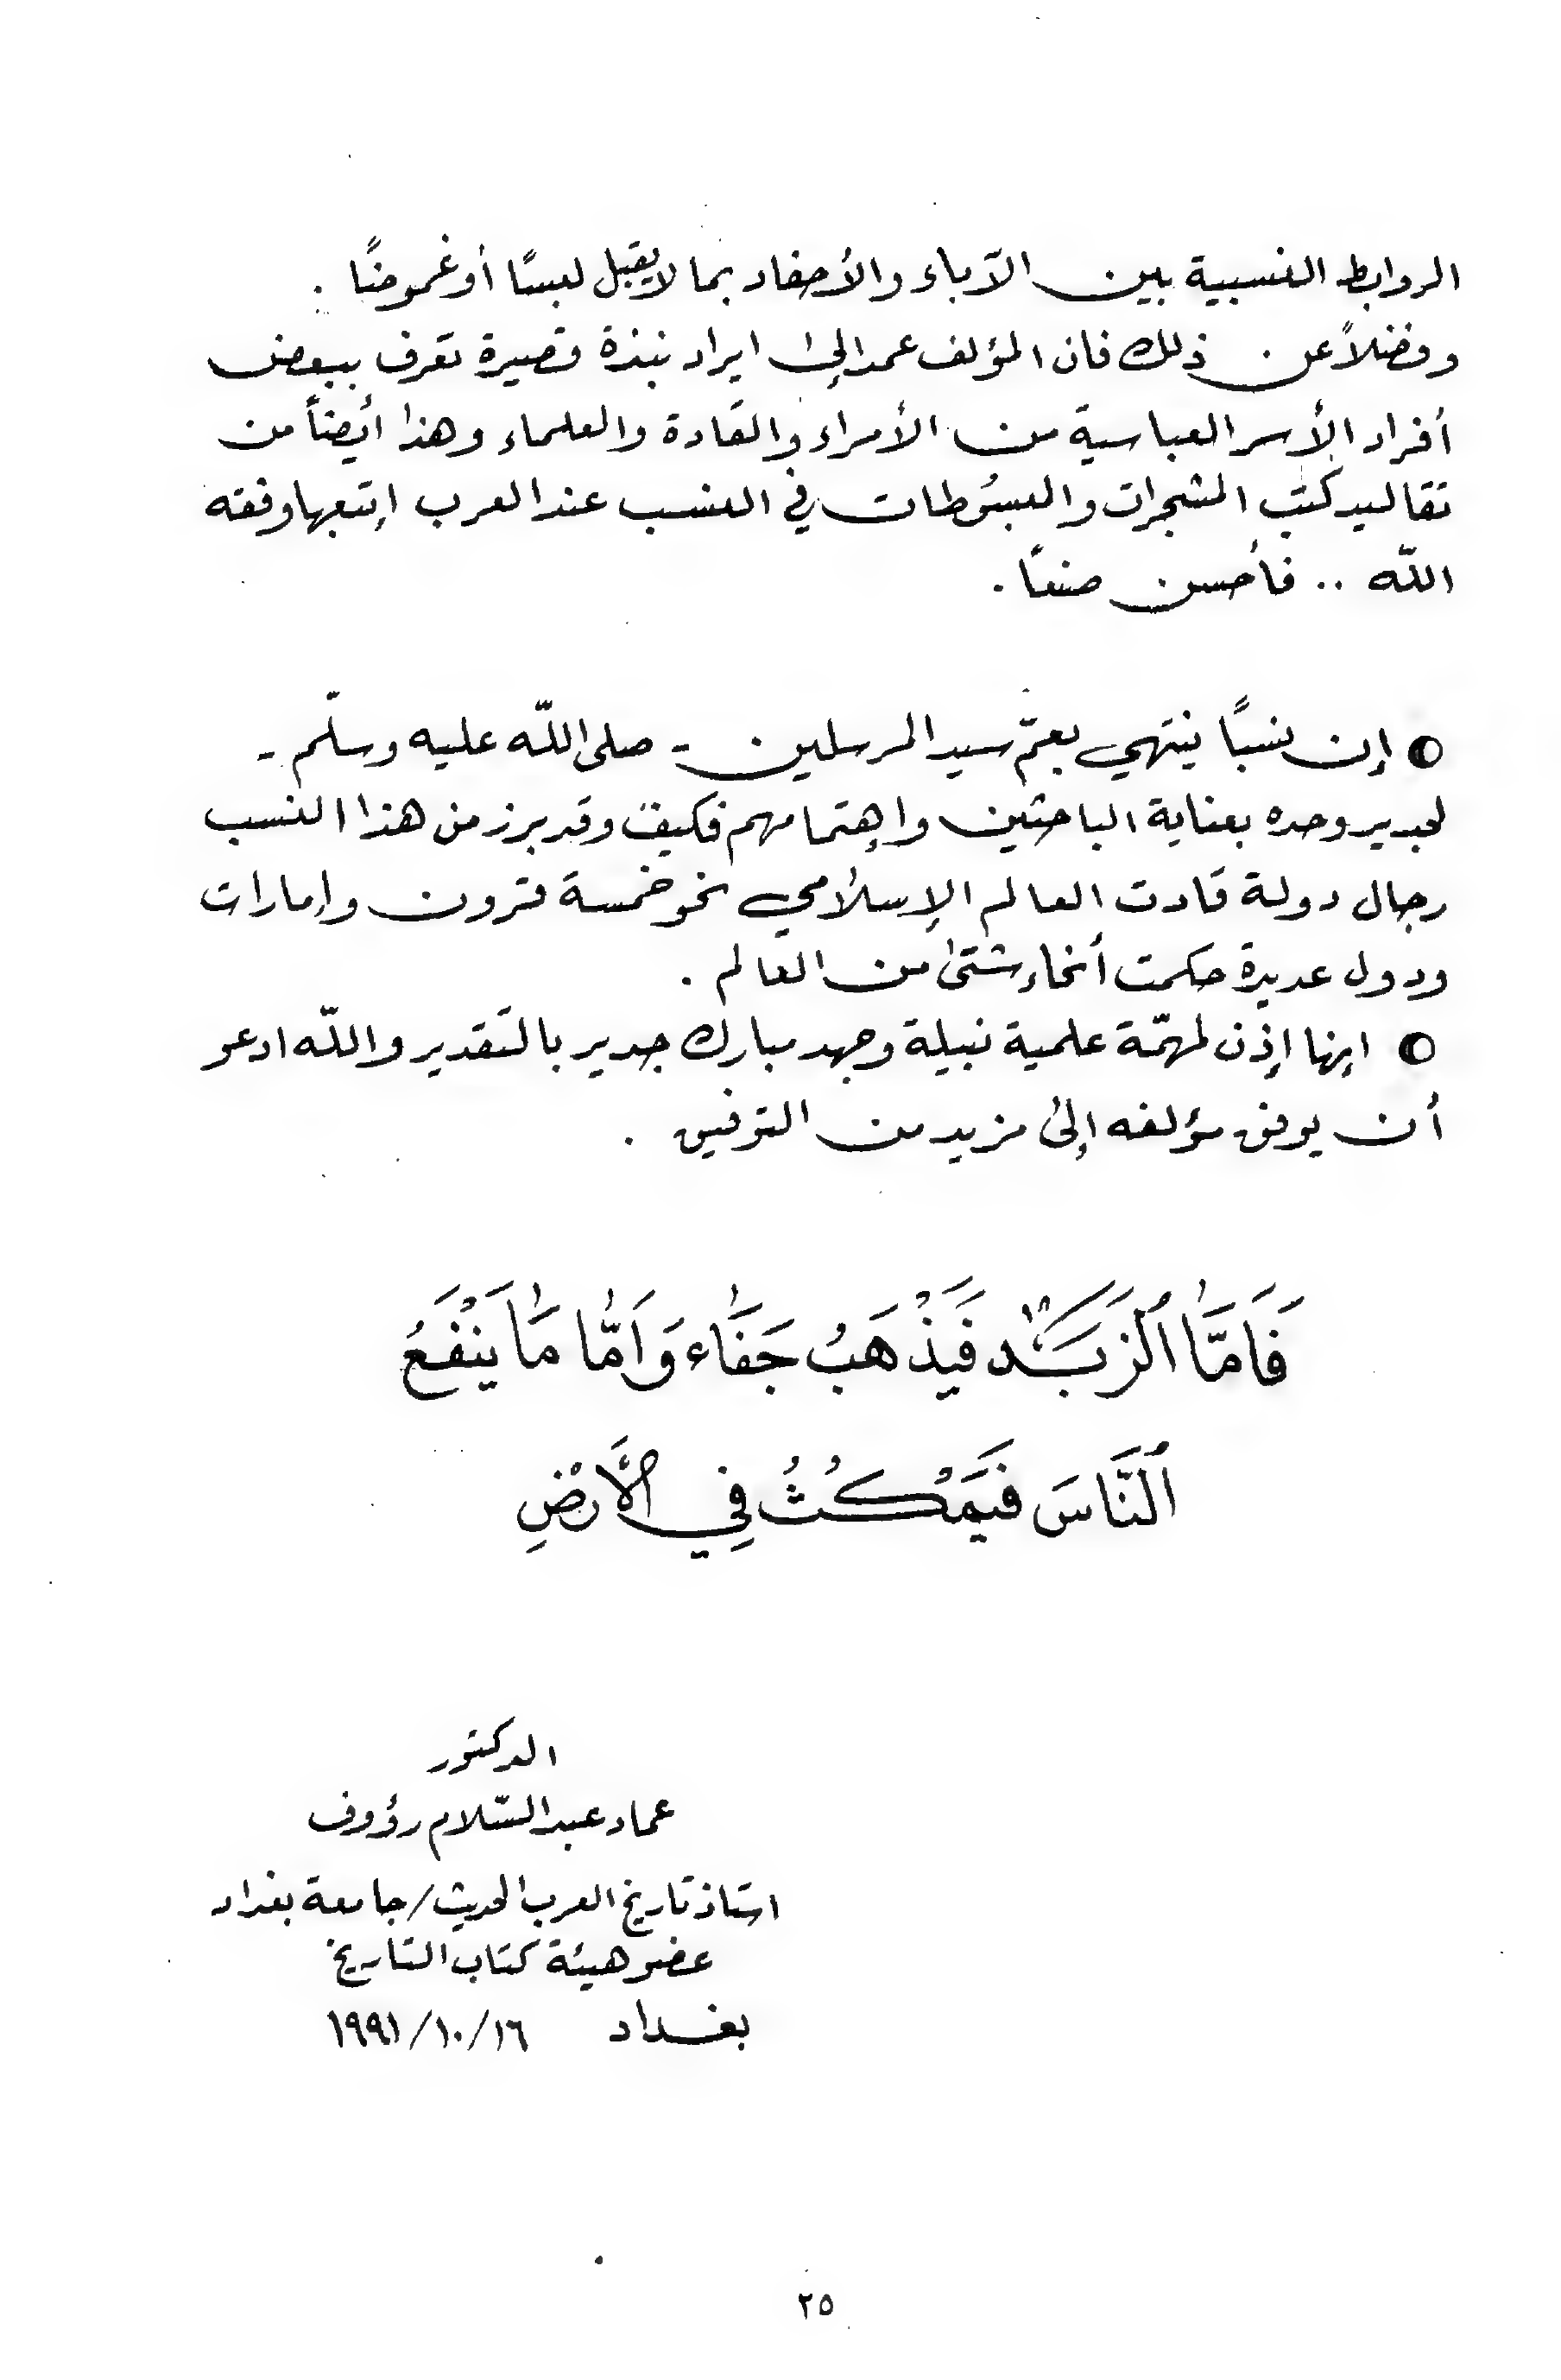 الروابط النسبية بين الآباء والأحفاد بما لا يقبل لبسًا أو غموضًا .
وفضلاً عن ذلك فان المؤلف عمد إلى ايراد نبذة قصيرة تعرف ببعض
أفراد الأسر العباسية من الأمراء والقادة والعلماء وهذا أيضاً من
تقاليد كتب المشجرات والمبسوطات في النسب عند العرب إتبعها وفقه
اللّه .. فأحسن صنعًا .
إن نسبًا ينتهي بعمّ سيد المرسلين - صلى اللّه عليه وسلّم -
لجدير وحده بعناية الباحثين وإهتمامهم فكيف وقد برز من هذا النسب
رجال دولة قادت العالم الإسلامي نحو خمسة قرون وإمارات
ودول عديدة حكمت أنحاء شتى من العالم .
إنها إذن لمهمّة علمية نبيلة وجهد مبارك جدير بالتقدير واللّه ادعو
أن يوفق مؤلفه إلى مزيد من التوفيق .
فَاَمَّا ٱلزَبَد فَيَذْهَبُ جَفَاء وَاَمّا مَا يَنْفَعُ
ٱلنَّاسَ فَيَمْكُثُ فِي الأَرْضِ
الدكتور
عماد عبد السّلام رؤوف
استاذ تاريخ العرب الحديث / جامعة بغداد
عضو هيئة كتاب التاريخ
بغداد ١٦/ ١٠/ ١٩٩١
٢٥